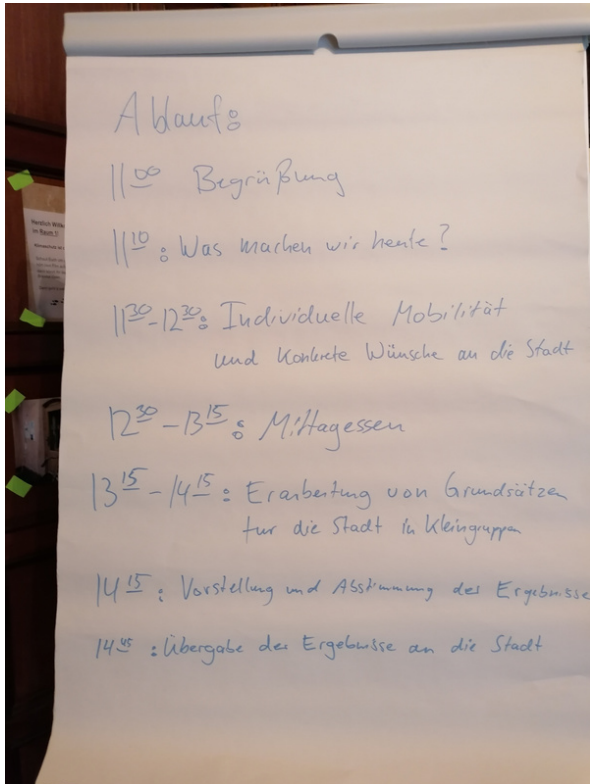 Herzlich Willk
im Raum 1!
Ablauf:
11 00 Begrüßung
11 10 : Was machen wir heute?
11 30 - 12 30 : Individuelle Mobilität
und konkrete Wünsche an die Stadt
12 30 - 13 15 : Mittagessen
13 15 - 14 15 : Erarbeitung von Grundsätzen
für die Stadt in Kleingruppen
14 15 : Vorstellung und Abstimmung der Ergebnisse
14 45 : Übergabe der Ergebnisse an die Stadt